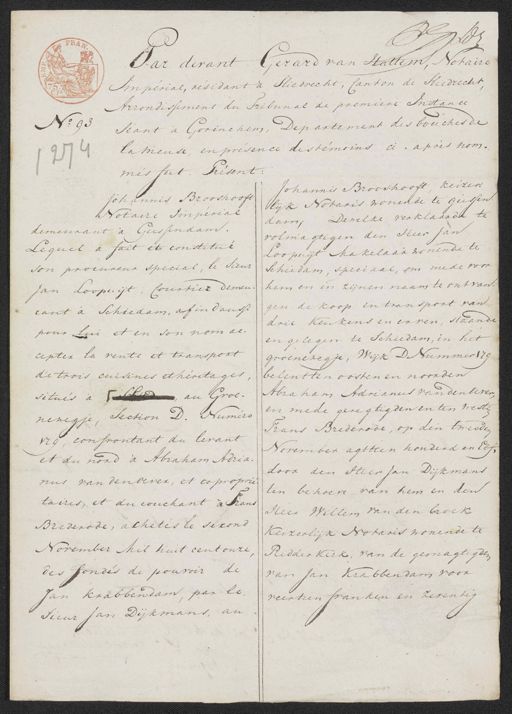 Par devant Gerard van Hattem, Notaire
Imperial, residant à Sliedrecht, Canton de Sliedrecht,
Arrondissement du Tribunal de première Instance
Séant à Gorinchem, Departement des bouches de
la Meuse, en présence des témoins ci-après nom-
més fut Présent.
No 93
1274
Johannis Brooshooft
Notaire Imperial
demeurant à Giessendam.
Lequel à fait et constitué
son procureur special, le Sieur
Jan Loopuijt, Courtier demeu-
rant à Schiedam,
pour lui et en son nom ac-
cepter la vente et transport
de trois cuisines et héritages,
situés à au Groe-
neweegje, Section D. Numéro
179, confrontant du levant
et du nord à Abraham Adria-
nus van den Oever, et coproprié-
taires, et du couchant à Frans
Brederode, achetés le second
November Mil huit cent onze,
des fondés de pouvoir de
Jan Krabbendam, par le
Sieur Jan Dijkmans, au
Johannis Brooshooft, keizer-
lijk Notaris wonende te Giessen-
dam, Dewelke verklaarde te
volmagtegen den Heer Jan
Loopuijt Makelaar wonende te
Schiedam, speciaal, om mede voor
hem en in zijnen naam te ontvan-
gen de koop en transport van
drie keukens en erven, staande
en gelegen te Schiedam, in het
groeneweegje, Wijk D. Nummer 179
belent ten oosten en noorden
Abraham Adrianus van den Oever,
en mede geregtigden en ten westen
Frans Brederode, op den tweeden
November agttien honderd en Elf,
door den Heer Jan Dijkmans
ten behoeve van hem en den
Heer Willem van den broek
Keizerlijk Notaris wonende te
Ridderkerk, van de gemagtigden
van Jan Krabbendam voor
veertien franken en zeventig